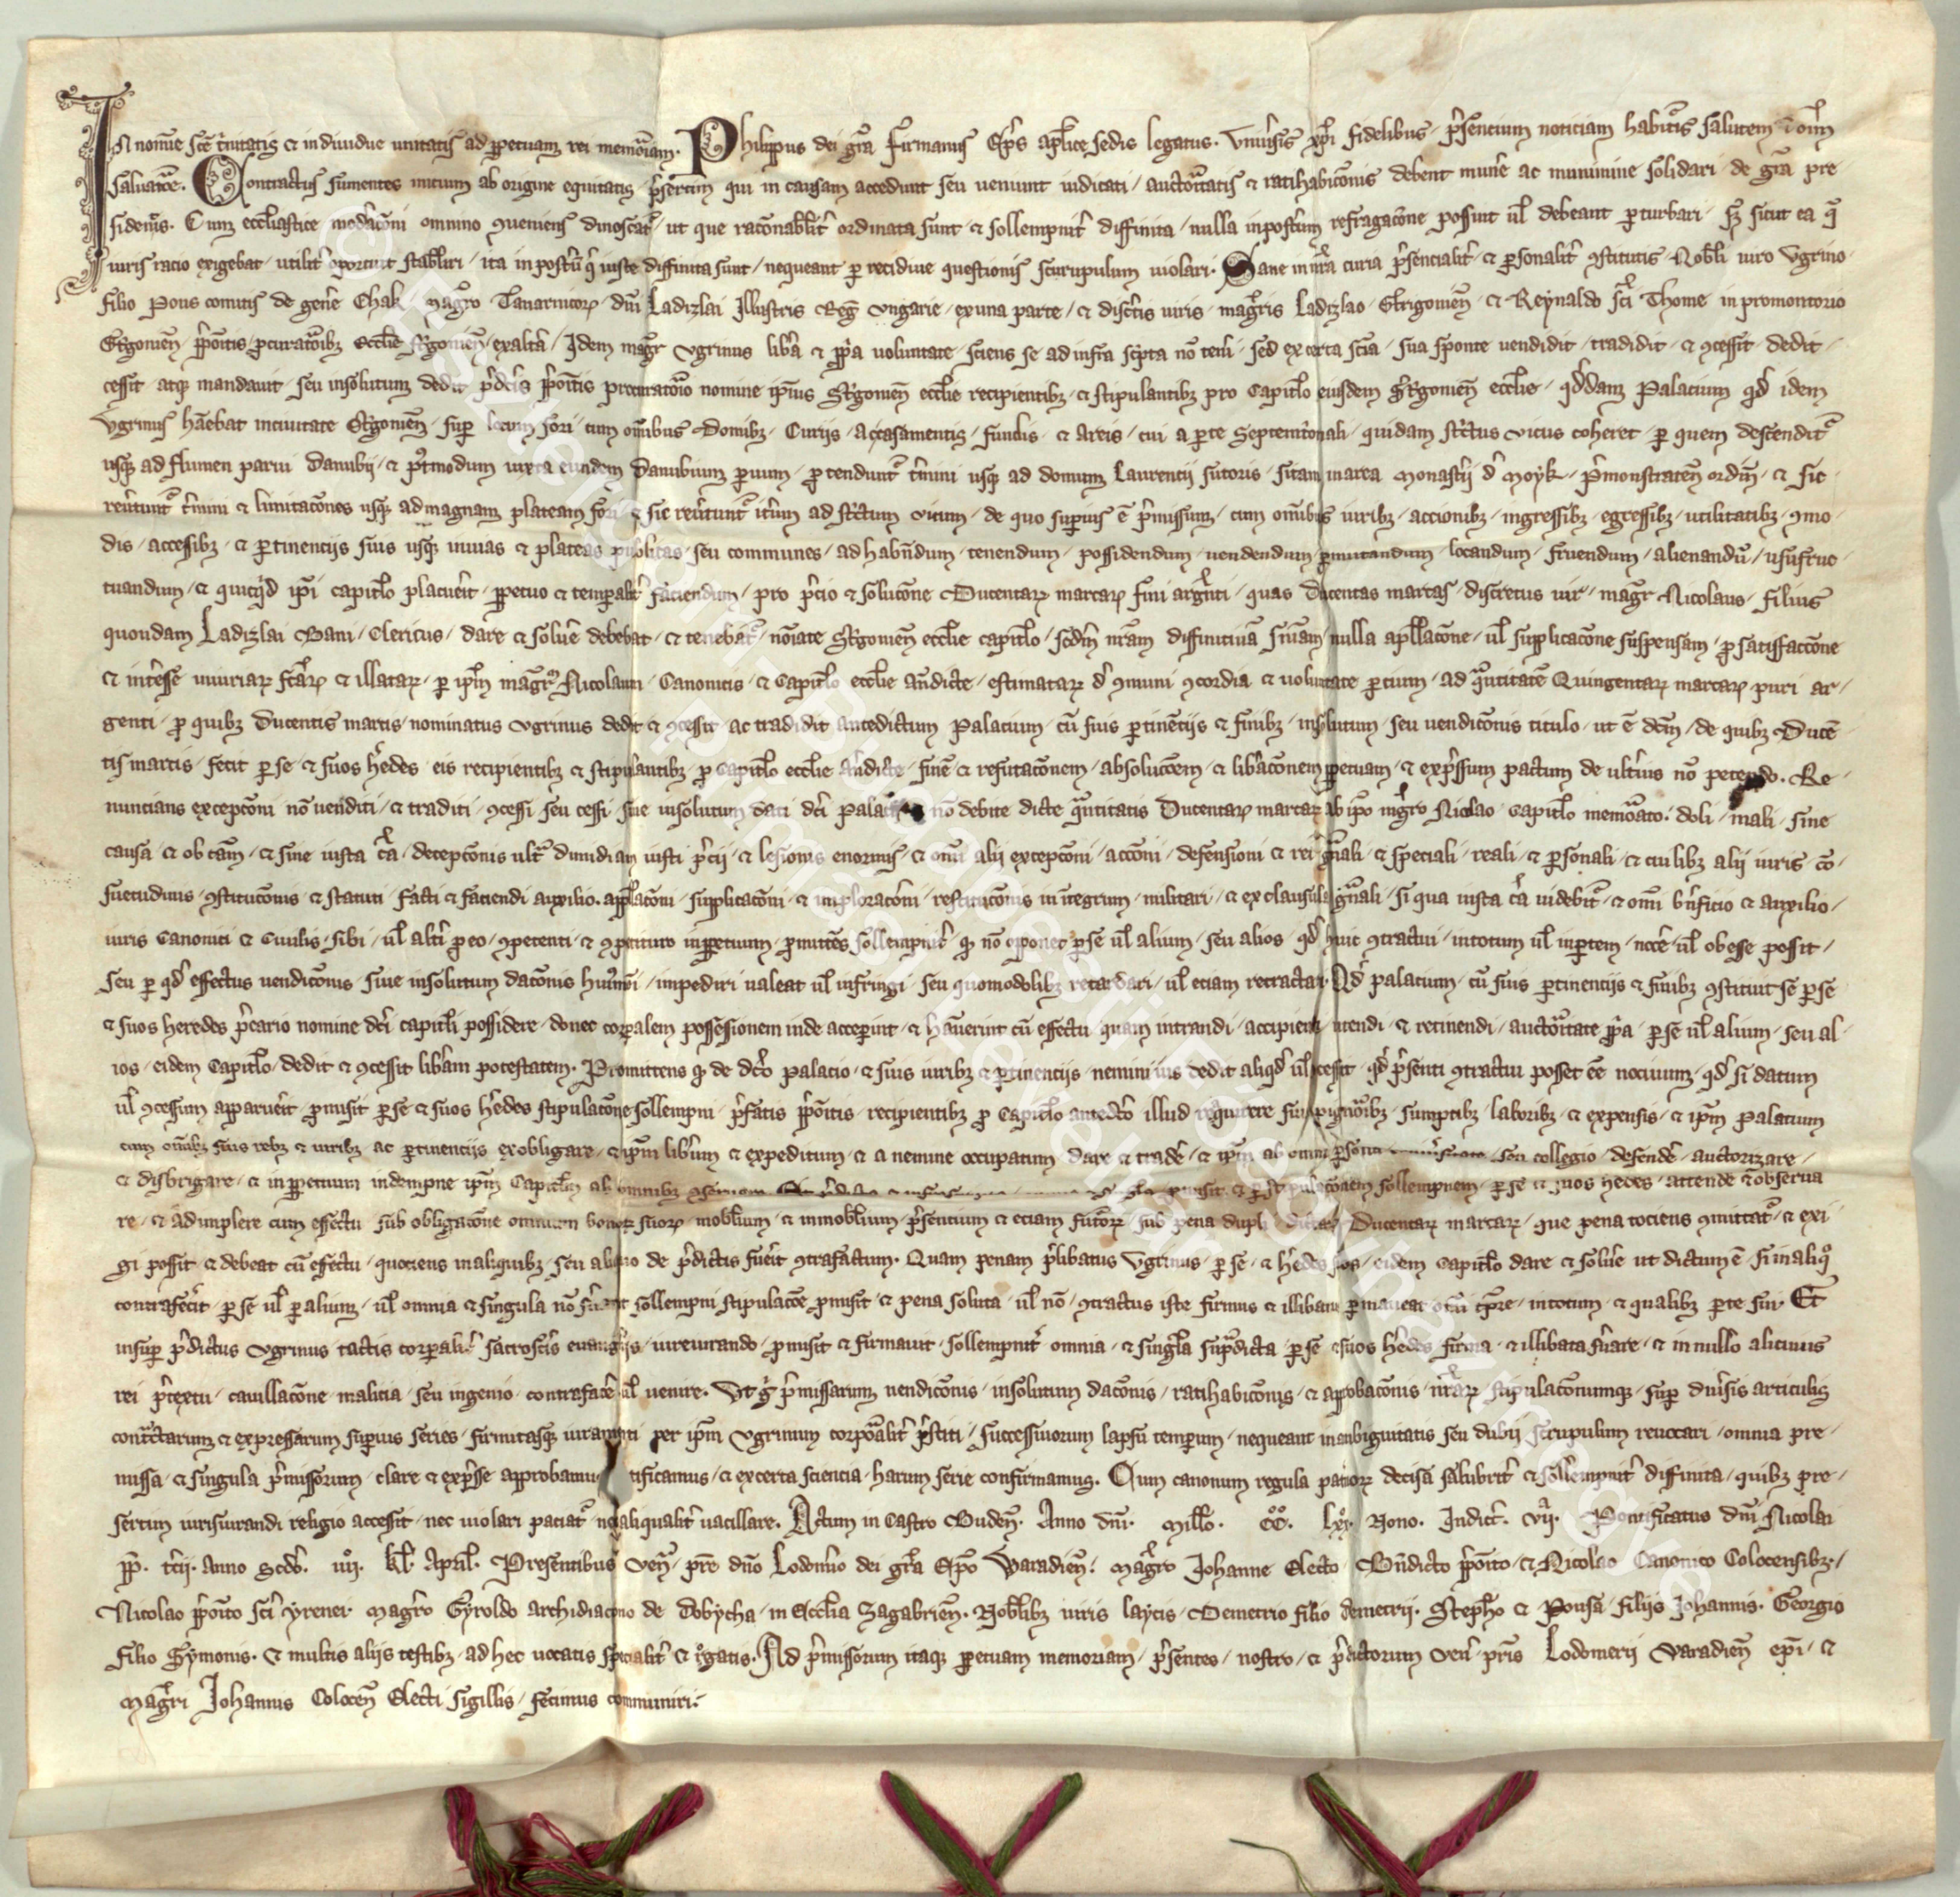 IN nomine scē trinitatis et indiuidue unitatis ad ꝑpetuam rei memoriam. Philippus dei grā Firmanus Ep̄s ap̄lice sedis legatus. Uniu̾sis xp̄i fidelibus p̾sencium noticiam habitur̾ salutem omīm
saluatore. Contractus sumentes inicium ab origine equitatis p̾sertim qui in causam accedunt seu ueniunt iudicati / auctoritatis et ratihabicōnis debent mune̾ ac munimine solidari de grā pre
sidentis. Cum eccl̄iastice moderacōni omnino ꝯueniens dinoscat̾ / ut que racōnabilit̾ ordinata sunt et sollempnit̾ diffinita / nulla inpost̾um refragacōne possint ul̄ debeant ꝑturbari / sz sicut ea q̄
iuris racio exigebat utilit̾ oportuit stabiliri / ita in post̾u q̄ iuste diffinita sunt / nequeant ꝑ recidiue questionis scrupulum uiolari. Sane in nr̄a curia p̾sencialit̾ et ꝑsonalit̾ ꝯstitutis Nobili uiro Ugrino
filio Pous comitis de gene̾ Chak magr̄o Tauarnicoꝝ dn̄i Ladizlai Illustris Reg̾ Ungarie / ex una parte / et discretis uiris magr̄is Ladizlao Strigonien̄ et Reynaldo sc̄i Thome in promontorio
Strigonien̄ p̾positis / ꝓcuratoribꝫ eccl̄ie Strigonien̄ / ex alt̾a / Idem magr̄ Ugrinus libera et ꝓpria uoluntate sciens se ad infra sc̾pta nō teneri / sed ex certa sciā sua sponte uendidit / tradidit et ꝯcessit dedit /
cessit atqꝫ mandauit seu insolutum dedit p̾dictis p̾positis procuratorio nomine ip̄ius Strigonien̄ eccl̄ie recipientibꝫ et stipulantibꝫ pro Capit̄lo eiusdem Strigonien̄ eccl̄ie / qd̄dam Palacium qd̄ idem
Ugrinus hab̄ebat in ciuitate Strigonien̄ sup̾ locum fori cum om̄ibus Domibꝫ Curiis accasamentis fundis et areis / cui a ꝑte Septemt̾onali quidam st̾ctus uicus coheret ꝑ quem descendit̾
usqꝫ ad flumen parui Danubij / et postmodum iuxta eundem Danubium ꝑuum / ꝓtendunt̾ t̾mini usqꝫ ad domum Laurentij sutoris sitam in area Monasterij d̾ Moyk p̾monstraten̄ ordin̄ / et sic
reu̾tunt̾ t̾mini et limitacōnes usqꝫ ad magnam plateam fori et sic reu̾tunt̾ it̾um ad st̾ctum uicum / de quo sup̾ius ē p̾missum / cum om̄ibus iuribꝫ accionibꝫ ingressibꝫ egressibꝫ utilitatibꝫ ꝯmo
dis accessibꝫ et ꝑtinencijs suis usqꝫ in uias et plateas publicas seu communes / ad habn̄dum tenendum possidendum uendendum ꝑmutandum locandum fruendum alienandū / usufruc
tuandum / et quicqd ip̄i capit̄lo placuerit ꝑpetuo et temporalit̾ faciendum / pro p̾cio et solucōne Ducentaꝝ marcaꝝ fini argenti / quas Ducentas marcas discretus uir magr̄ Nicolaus filius
quondam Ladizlai Bani Clericus dare et solue̾ debebat et tenebat̾ nōiate Strigonien̄ eccl̄ie capit̄lo / scd̄m nr̄am diffinitiuā snīam nulla app̄llacōne ul̄ supplicacōne suspensam / ꝓ satisfaccōne
et interesse iniuriaꝝ fc̄aꝝ et illataꝝ ꝑ ip̄m magr̄m Nicolaum Canonicis et Capit̄lo eccl̄ie an̄dicte / estimataꝝ d̾ ꝯmuni ꝯcordia et uoluntate ꝑtium / ad quantitatē Quingentaꝝ marcaꝝ puri ar/
genti / ꝓ quibꝫ Ducentis marcis nominatus Ugrinus dedit et ꝯcessit ac tradidit antedictum Palacium cū suis ꝑtinēcijs et finibꝫ insolutum seu uendicōnis titulo / ut ē dc̄m / de quibꝫ Ducē
tis marcis fecit ꝑ se et suos he̾des eis recipientibꝫ et stipulantibꝫ ꝓ Capit̄lo eccl̄ie an̄dicte finē et refutacōnem / absoluccōem et libacōnem ꝑpetuam / et exp̾ssum pactum de ult̾ius nō petendo. Re/
nuncians excepcōni nō uenditi et traditi ꝯcessi seu cessi siue insolutum dati dc̄i palacij nō debite dicte quantitatis Ducentaꝝ marcaꝝ ab ip̄o magr̄o Nicolao Capit̄lo memorato. doli mali sine
causa et ob cām et sine iusta cā / decepcōnis ult̾ dimidiam iusti p̾cij et lesionis enormis et om̄i alij excepcōni accōni defensioni et rei gn̄ali et speciali reali et ꝑsonali / et cui libꝫ alij iuris cō/
suetudinis ꝯstitucōnis et statuti facti et faciendi auxilio. appellacōni supplicacōni et imploracōni restitucōnis in integrum militari et ex clausula gn̄ali / si qua iusta cā uidebit̾ et om̄i bn̄ficio et auxilio
iuris Canonici et Ciuilis sibi ul̄ alt̾i ꝓ eo ꝯpetenti et ꝯpetituro in ꝑpetuum / ꝓmittēs sollempnit̾ qꝫ nō oponet ꝑ se ul̄ alium seu alios qd̄ huic ꝯtractui in totum ul̄ in ꝑtem nocere ul̄ obesse possit /
seu ꝑ qd̄ effectus uendicōnis siue insolutum dacōnis hui̾modi impediri ualeat ul̄ infringi seu quomodolibꝫ retardari ul̄ eciam retractari. Qd̄ palacium cū suis ꝑtinencijs et finibꝫ ꝯstituit se ꝑ se
et suos heredes p̾cario nomine dc̄i capit̄li possidere donec corꝑalem possessionem inde acceperint et habuerint cū effectu quam intrandi accipiendi utendi et retinendi auctoritate ꝓpria ꝑ se ul̄ alium seu al/
ios eidem Capit̄lo dedit et ꝯcessit liberam potestatem. Promittens qꝫ de dc̄o palacio et suis iuribꝫ et ꝑtinencijs nemini ius dedit aliqd̄ ul̄ ꝯcessit qd̄ p̾senti ꝯtractui posset eē nociuum / qd̄ si datum
ul̄ ꝯcessum apparuerit ꝓmisit ꝑ se et suos he̾des stipulacōne sollempni p̾fatis p̾positis recipientibꝫ ꝓ Capit̄lo antedc̄o illud requirere suis pignoribꝫ sumptibꝫ laboribꝫ et expensis et ip̄m Palacium
cum om̄ibꝫ suis rebꝫ et iuribꝫ ac ꝑtinencijs exobligare et ip̄m liberum et expeditum et a nemine occupatum dare et trade̾ et ip̄m ab omni ꝑsona seu collegio defende̾ auctorizare /
et disbrigare et in ꝑpetuum indempne ip̄m Capit̄lm ab omnibꝫ ꝓmisit et ꝑ stipulacōnem sollempnem ꝑ se et suos he̾des attende̾ et obserua
re et adimplere cum effectu sub obligacōne omnium bonoꝝ suoꝝ mobilium et immobilium p̾sencium et eciam futuroꝝ sub pena dupli dictaꝝ Ducentaꝝ marcaꝝ que pena tociens ꝯmittat̾ et exi
gi possit et debeat cū effectu quociens in aliquibꝫ seu aliquo de p̾dictis fuerit ꝯtrafactum. Quam penam p̾libatus Ugrinus ꝑ se et he̾des suos eidem Capit̄lo dare et solue̾ ut dictum ē si in aliquo
contrafecerit ꝑ se ul̄ ꝑ alium ul̄ omnia et singula nō seruaret sollempni stipulacōe ꝓmisit et pena soluta ul̄ nō ꝯtractus iste firmus et illibatus ꝑmaneat om̄i tp̄re in totum et qualibꝫ ꝑte sui. Et
insuꝑ p̾dictus Ugrinus tactis corꝑalit̾ sacrosc̄is euangelijs iureiurando ꝓmisit et firmauit sollempnit̾ omnia et singula sup̾dicta ꝑ se et suos he̾des firma et illibata seruare et in nullo alicuius
rei p̾textu cauillacōne malicia seu ingenio contraface̾ ul̄ uenire. Ut g̾ p̾missarum uendicōnis insolutum dacōnis ratihabicōnis et aprobacōnis nr̄aꝝ stipulacōnumqꝫ sup̾ diu̾sis articulis
contractarum et expressarum sup̾ius series firmitasqꝫ iuramenti per ip̄m Ugrinum corporalit̾ p̾stiti successiuorum lapsu temꝑum nequeant in ambiguitatis seu dubij scrupulum reuocari omnia pre/
missa et singula p̾missorum clare et exp̾sse approbamus ratificamus et ex certa sciencia harum serie confirmamus. Cum canonum regula patroꝝ decisa salubrit̾ et sollempnit̾ diffinita quibꝫ pre/
sertim iurisiurandi religio accessit nec uiolari paciat̾ nec aliqualit̾ uacillare. Actum in Castro Buden̄. Anno dn̄i. Mill̄o. CC. lxx. Nono. Indict̾. vij. Pontificatus dn̄i Nicolai
pp̄. t̾cij. Anno Scd̄o. iiij. kl̄. April̄. Presentibus Ven̄. pr̄e dn̄o Lodomerio dei grā Ep̄o Waradien̄. magr̄o Johanne Electo Bn̄dicto p̾posito et Nicolao Canonico Colocensibꝫ /
Nicolao p̾posito sc̄i yrenei magr̄o Gyroldo archidiacono de Dobycha in Eccl̄ia Zagabrien̄. Nobilibꝫ uiris laycis Demetrio filio demetrij. Steph̄o et Pousa filijs Johannis. Georgio
filio Symonis. et multis alijs testibꝫ ad hec uocatis specialit̾ et rogatis. Ad p̾missorum itaqꝫ ꝑpetuam memoriam p̾sentes nostro et p̾dictorum uen̄ pr̄is Lodomerij Varadien̄ ep̄i et
magr̄i Johannis Colocen̄ Electi sigillis fecimus communiri.